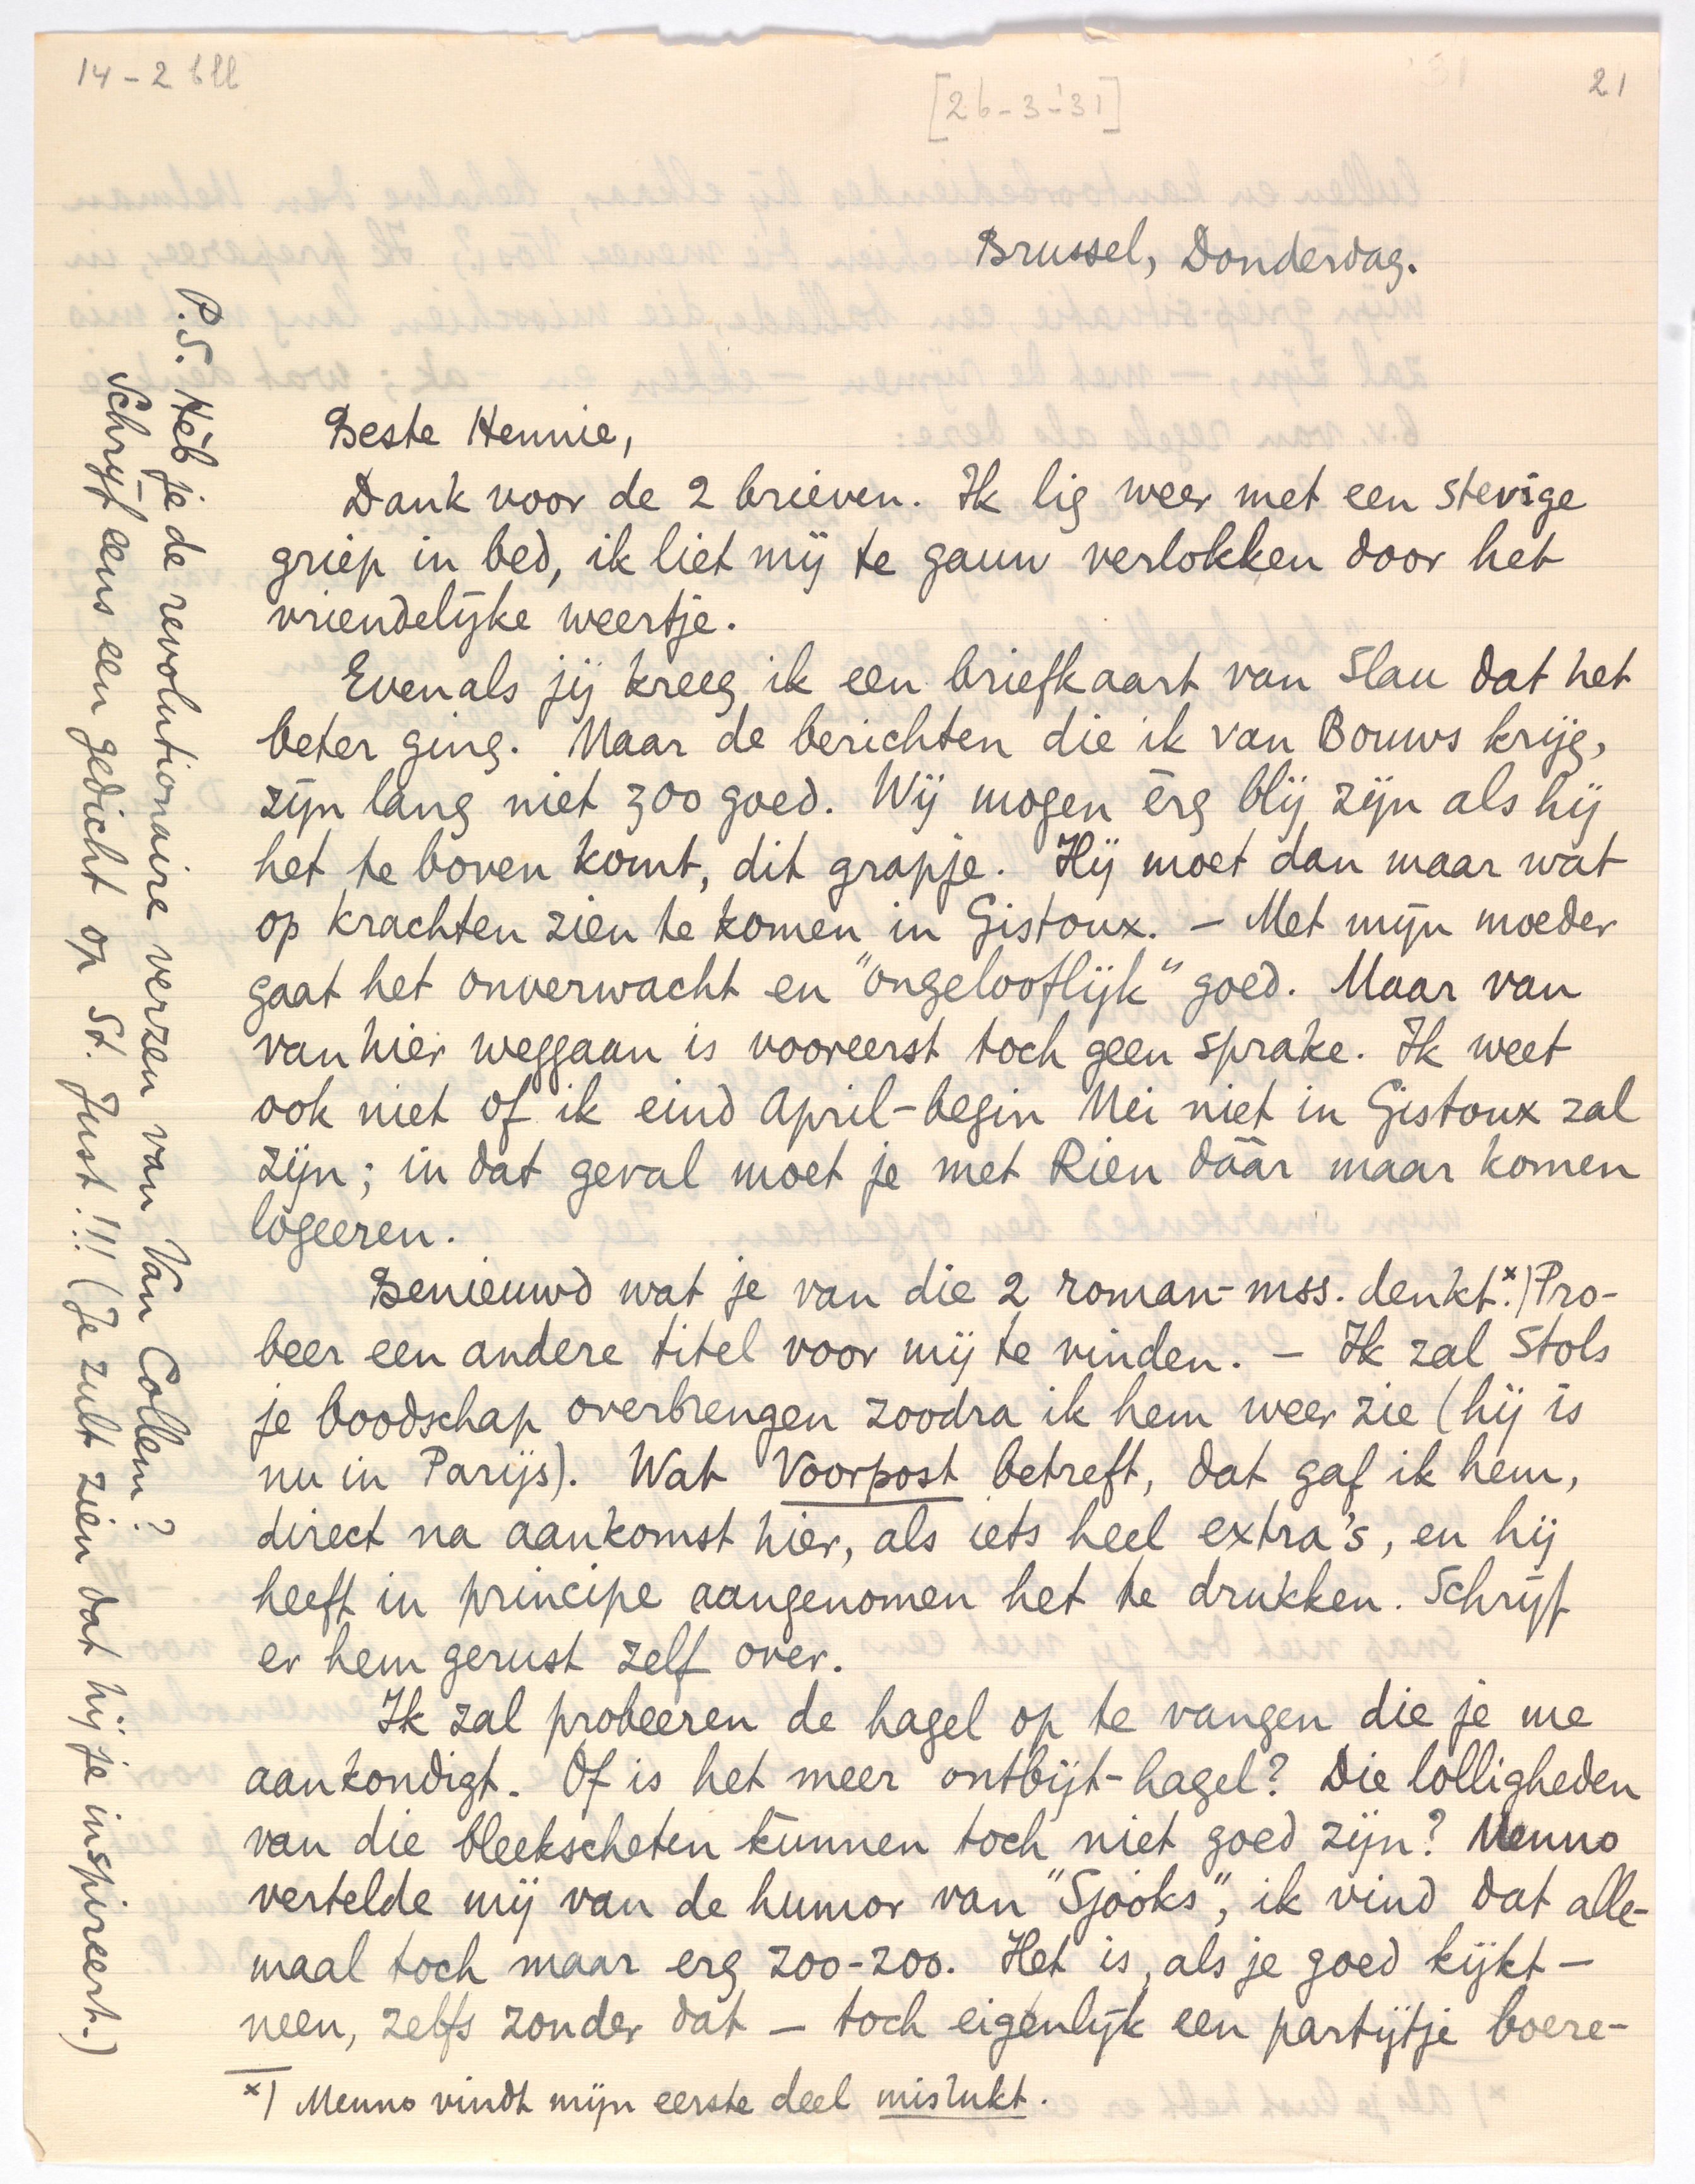 14 - 2 bll
[26-3-'31]
21
Brussel, Donderdag.
Beste Hennie,
Dank voor de 2 brieven. Ik lig weer met een stevige
griep in bed, ik liet mij te gauw verlokken door het
vriendelijke weertje.
Evenals jij kreeg ik een briefkaart van Slau dat het
beter ging. Maar de berichten die ik van Bouws krijg,
zijn lang niet zoo goed. Wij mogen èrg blij zijn als hij
het te boven komt, dit grapje. Hij moet dan maar wat
op krachten zien te komen in Gistoux. – Met mijn moeder
gaat het onverwacht en "ongelooflijk" goed. Maar van
van hier weggaan is vooreerst toch geen sprake. Ik weet
ook niet of ik eind April-begin Mei niet in Gistoux zal
zijn; in dat geval moet je met Rien dáár maar komen
logeeren.
Benieuwd wat je van die 2 roman-mss. denkt.*) Pro-
beer een andere titel voor mij te vinden. – Ik zal Stols
je boodschap overbrengen zoodra ik hem weer zie (hij is
nu in Parijs). Wat Voorpost betreft, dat gaf ik hem,
direct na aankomst hier, als iets heel extra's, en hij
heeft in principe aangenomen het te drukken. Schrijf
er hem gerust zelf over.
Ik zal probeeren de hagel op te vangen die je me
aankondigt. Of is het meer ontbijt-hagel? Die lolligheden
van die bleekscheten kunnen toch niet goed zijn? Menno
vertelde mij van de humor van "Sjooks", ik vind dat alle-
maal toch maar erg zoo-zoo. Het is, als je goed kijkt –
neen, zelfs zonder dat – toch eigenlijk een partijtje boere-
*) Menno vindt mijn eerste deel mislukt.
P.S. Heb je de revolutionaire verzen van Van Collem?
Schrijf eens een gedicht op St. Just!!! (Je zult zien dat hij je inspireert.)